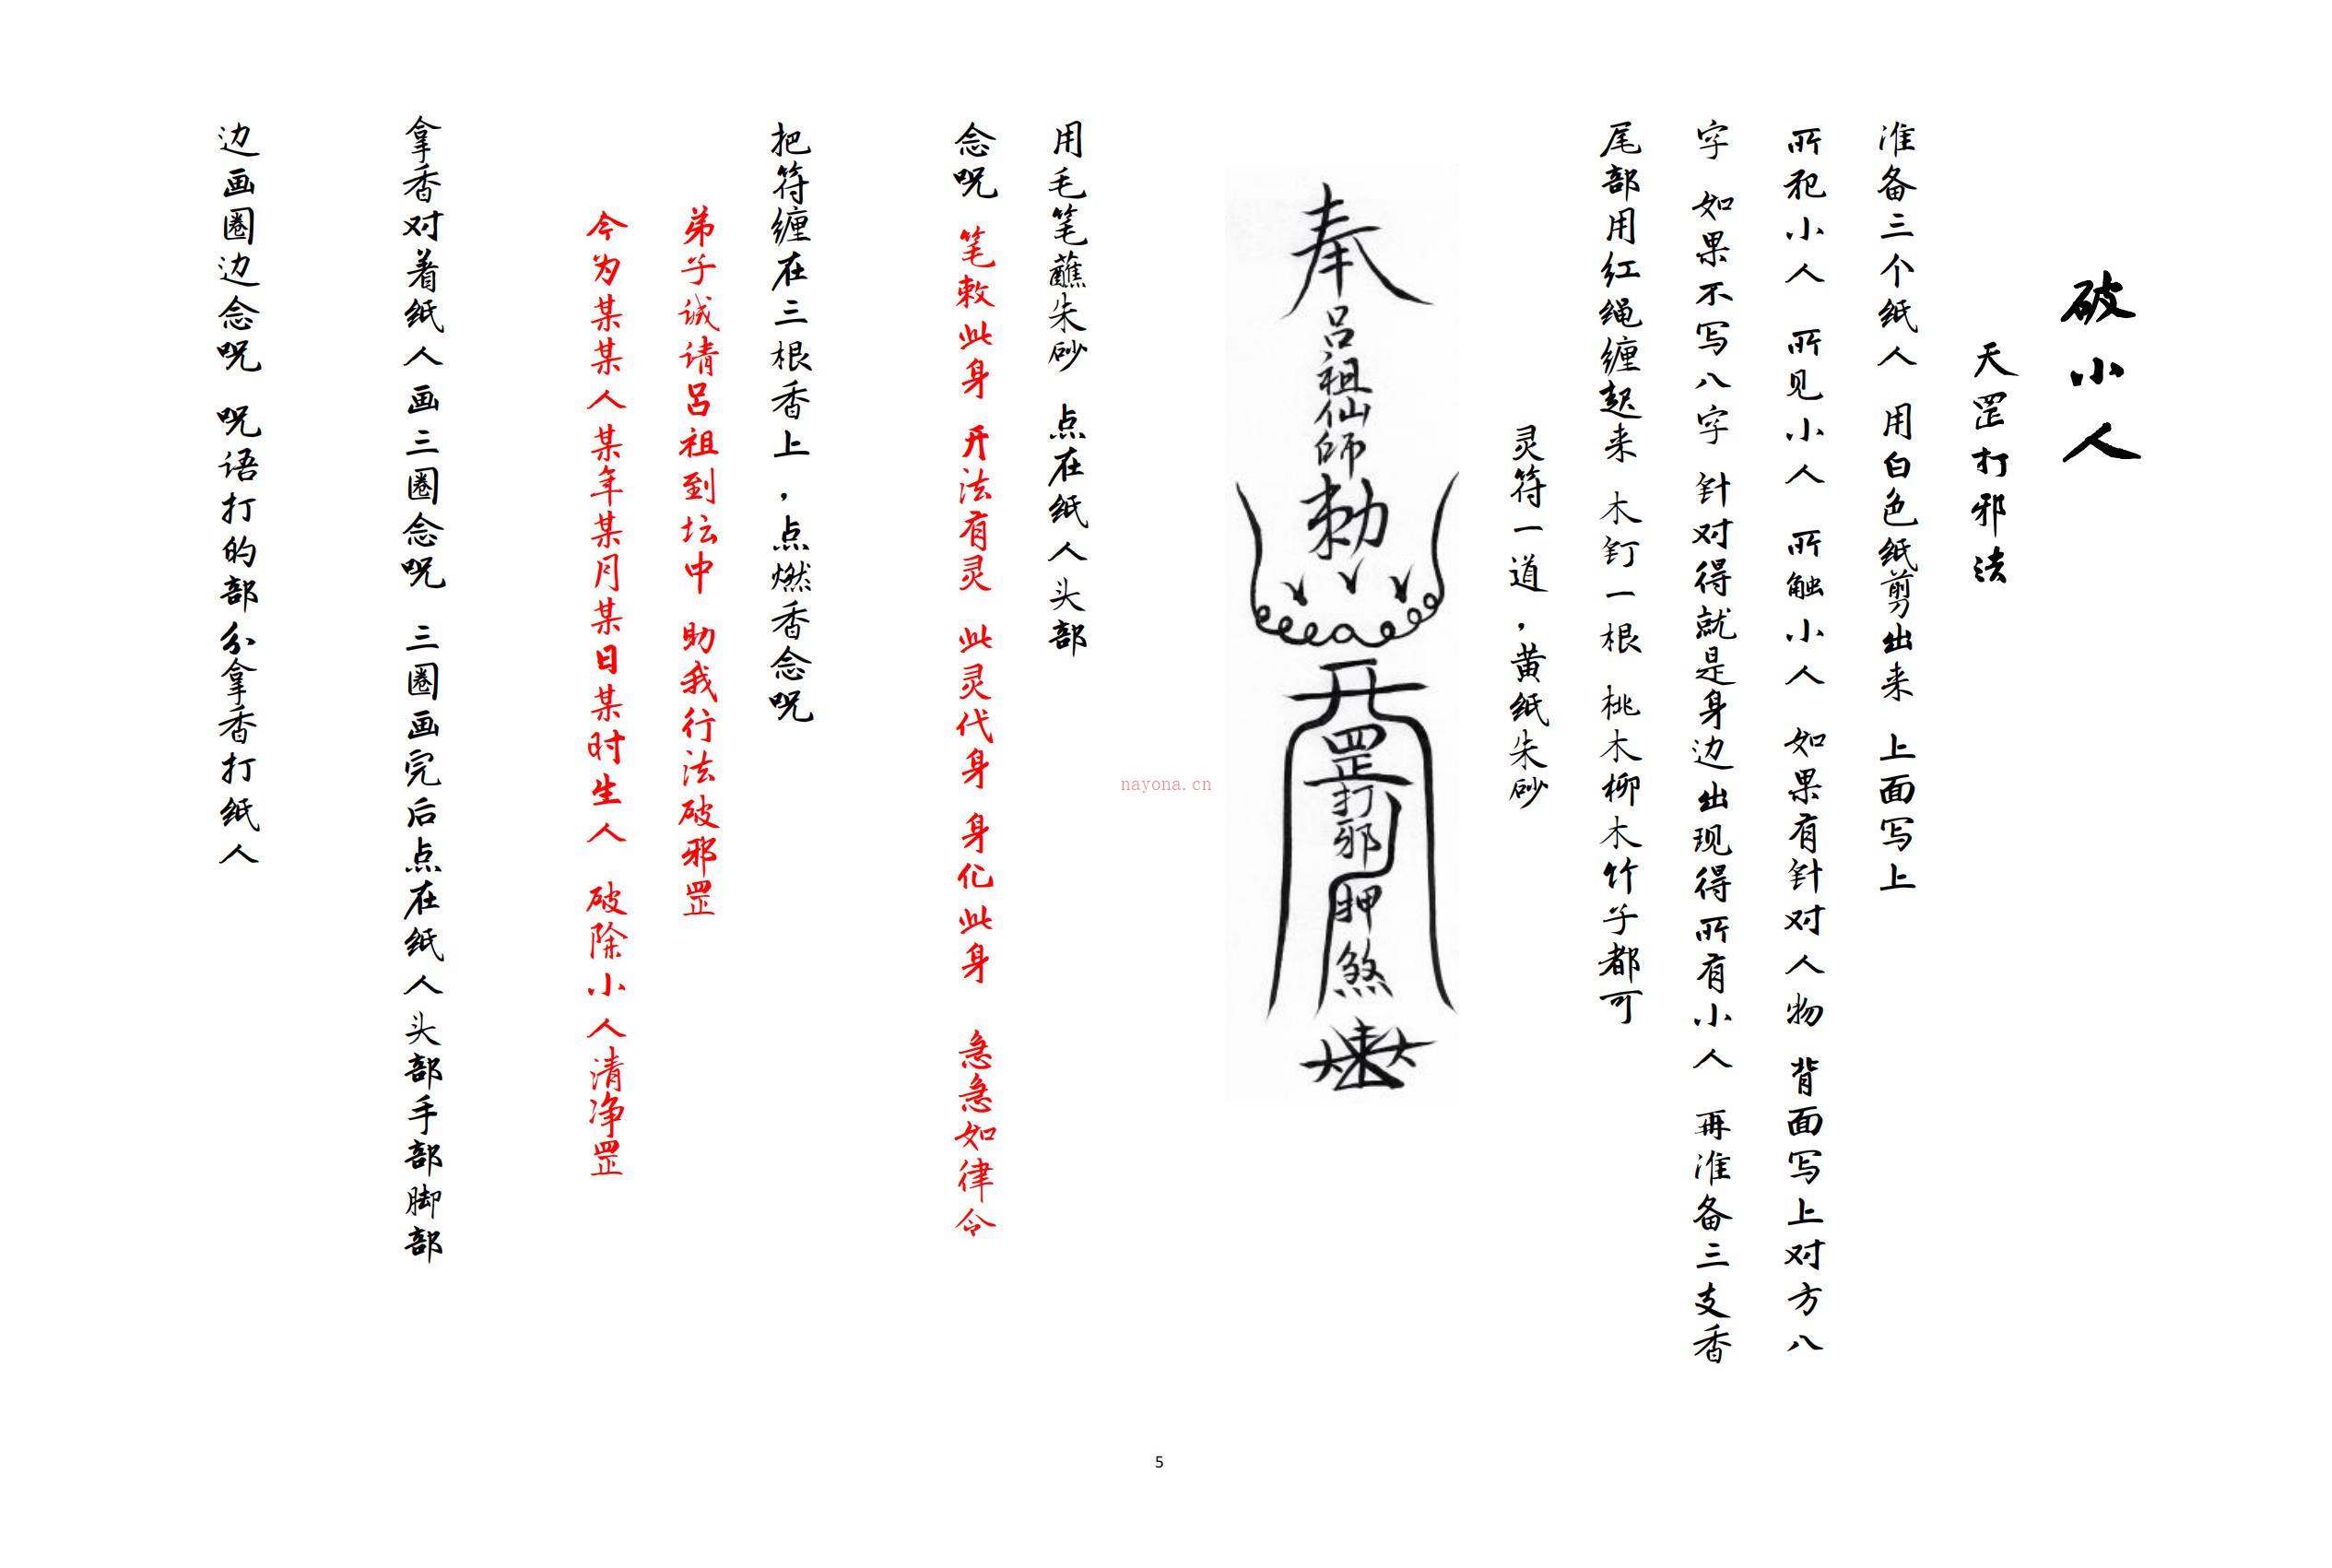 破小人
天罡打邪法
准备三个纸人 用白色纸剪出来 上面写上
所犯小人 所见小人 所触小人 如果有针对人物 背面写上对方八
字 如果不写八字 针对得就是身边出现得所有小人 再准备三支香
尾部用红绳缠起来 木钉一根 桃木柳木竹子都可
灵符一道，黄纸朱砂
奉
吕祖仙师
勅
开
罡
打邪
押煞
用毛笔蘸朱砂 点在纸人头部
念咒 笔敕此身 开法有灵 此灵代身 身化此身 急急如律令
把符缠在三根香上，点燃香念咒
弟子诚请吕祖到坛中 助我行法破邪罡
今为某某人某年某月某日某时生人 破除小人清净罡
拿香对着纸人画三圈念咒 三圈画完后点在纸人头部手部脚部
边画圈边念咒 咒语打的部分拿香打纸人
nayona.cn
5